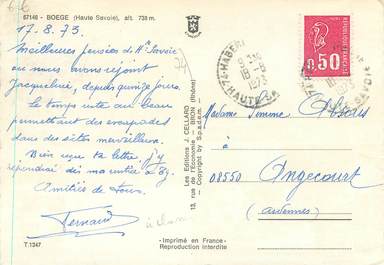 67146 - BOEGE (Haute Savoie), alt. 738 m.
17.8.73
Meilleures pensées de Hte Savoie
où nous avons rejoint
Jacqueline, depuis quinze jours.
Le temps reste au beau
permettant des escapades
dans des sites merveilleux.
Bien reçu ta lettre. J'y
répondrai dès ma rentrée à
Amitiés de tous.
Fernand
T.1347
74
Les Editions J. CELLARD
rue de l'Économie BRON (Rhône)
Copyright by S.p.a.d.e.m.
Imprimé en France
Reproduction interdite
74 HABERE
18-8
1973
HTE SAVOIE
0,50
Madame Simone
08550 Angecourt
(Ardennes)